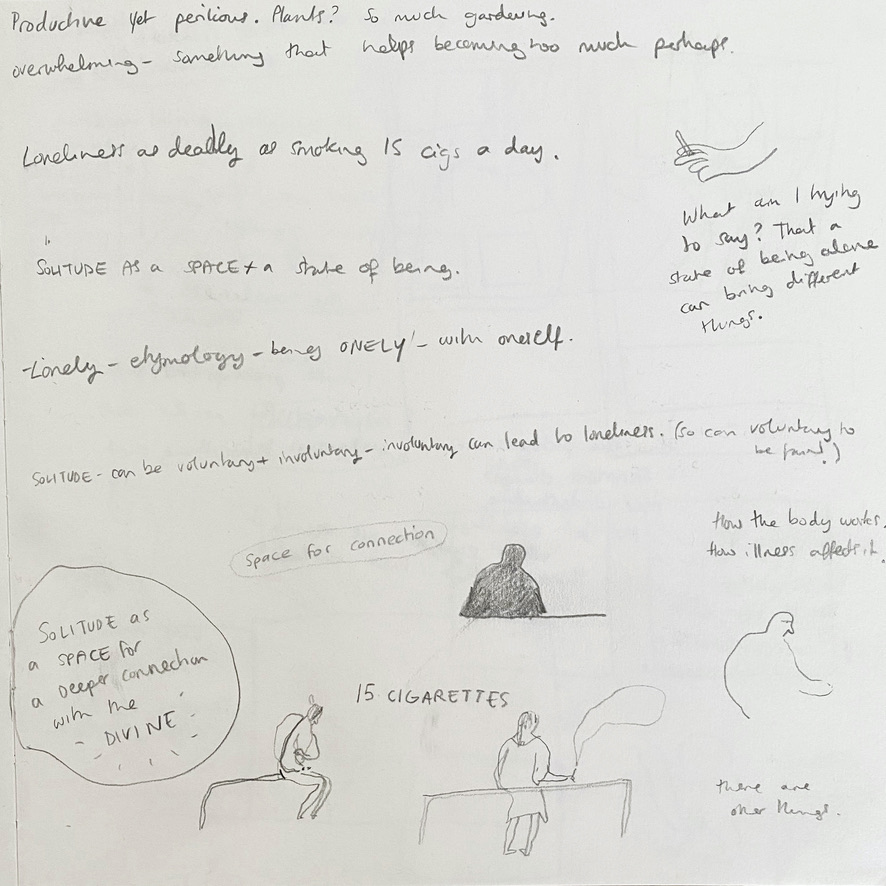 Productive yet perilious. Plants? So much gardening.
overwhelming - something that helps becoming too much perhaps.
Loneliness as deadly as smoking 15 cigs a day.
What am I trying
to say? That a
state of being alone
can bring different
things.
SOLITUDE AS a SPACE + a state of being.
- Lonely - etymology - being 'ONELY' - with oneself.
SOLITUDE - can be voluntary + involuntary - involuntary can lead to loneliness. (so can voluntary to
be fair!)
How the body works.
How illness affects it.
Space for connection
SOLITUDE as
a SPACE for
a DEEPER connection
with the
DIVINE
15 CIGARETTES
there are
other things.